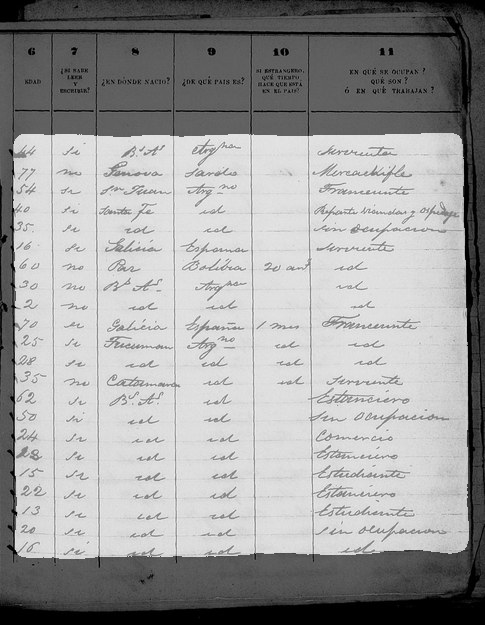 6 7 8 9 10 11
EDAD ¿SI SABE LEER Y ESCRIBIR? ¿EN DÓNDE NACIÓ? ¿DE QUÉ PAIS ES? SI ESTRANGERO, QUÉ TIEMPO HACE QUE ESTÁ EN EL PAIS? EN QUÉ SE OCUPAN? QUÉ SON? Ó EN QUÉ TRABAJAN?
44 si Bs As Argna Sirvienta
77 no Genova Sardo Mercachifle
54 si Sn Juan Argno Tranceunte
40 si Santa Fe id Reparte Viandas y
35 si id id Sin Ocupacion
16 si Galicia Espana Sirviente
60 no Par Bolibia 20 ans id
30 no Bs As Argna id
2 no id id id
70 si Galicia España 1 mes Tranceunte
25 si Tucuman Argno id id
28 si id id id id
35 no Catamarca id id Sirviente
62 si Bs As id Estanciero
50 si id id Sin Ocupacion
24 si id id Comercio
28 si id id Estanciero
15 si id id Estudiante
22 si id id Estanciero
13 si id id Estudiante
20 si id id Sin Ocupacion
16 si id id id